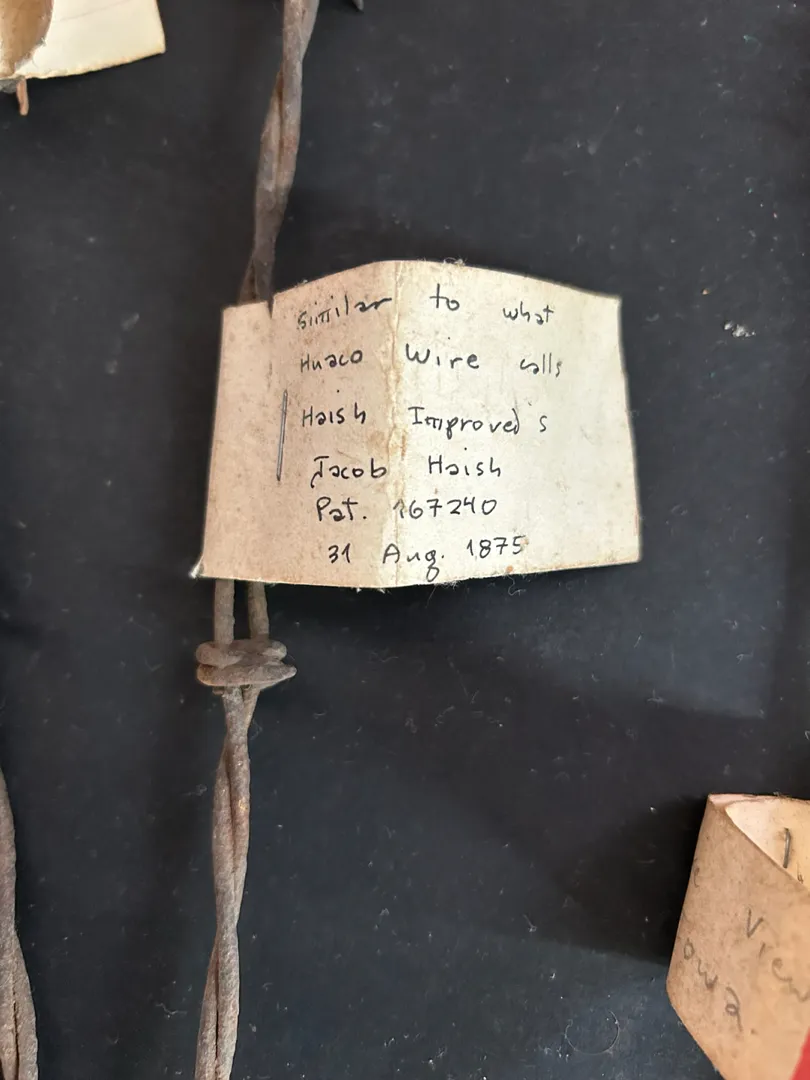 similar to what
Huaco Wire calls
Haish Improved S
Jacob Haish
Pat. 167240
31 Aug. 1875
View
owa.